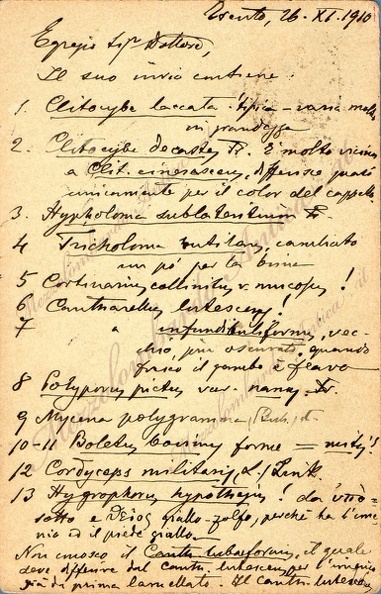 Trento, 26-XI-1910
Egregio Sigr Dottore,
Il suo invio contiene:
1. Clitocybe laccata tipica - varia molto
in grandezza
2. Clitocybe decastes Fr. È molto vicina
a Clit. cinerascens, differisce quasi
unicamente per il color del cappello
3. Hypholoma sublateritium Fr.
4 Tricholoma rutilans, cambiato
un pò per la brina
5 Cortinarius collinitus v. mucosus!
6 Cantharellus lutescens!
7 " infundibuliformis, vec-
chio, più oscurato, quando
fresco il gambo è flavo
8 Polyporus pictus var. nanus Fr.
9 Mycena polygramma (Bull.)
10-11 Boletus bovinus forme = mitis!
12 Cordyceps militaris (L.) Link.
13 Hygrophorus hypothejus! da ὑπό =
sotto e θεῖος giallo-zolfo, perchè ha l'ime-
nio ed il piede giallo.
Non conosco il Canth. tubaeformis, il quale
deve differire dal canth. lutescens per l'imenio
già di prima lamellato. Il Canth. lutescens